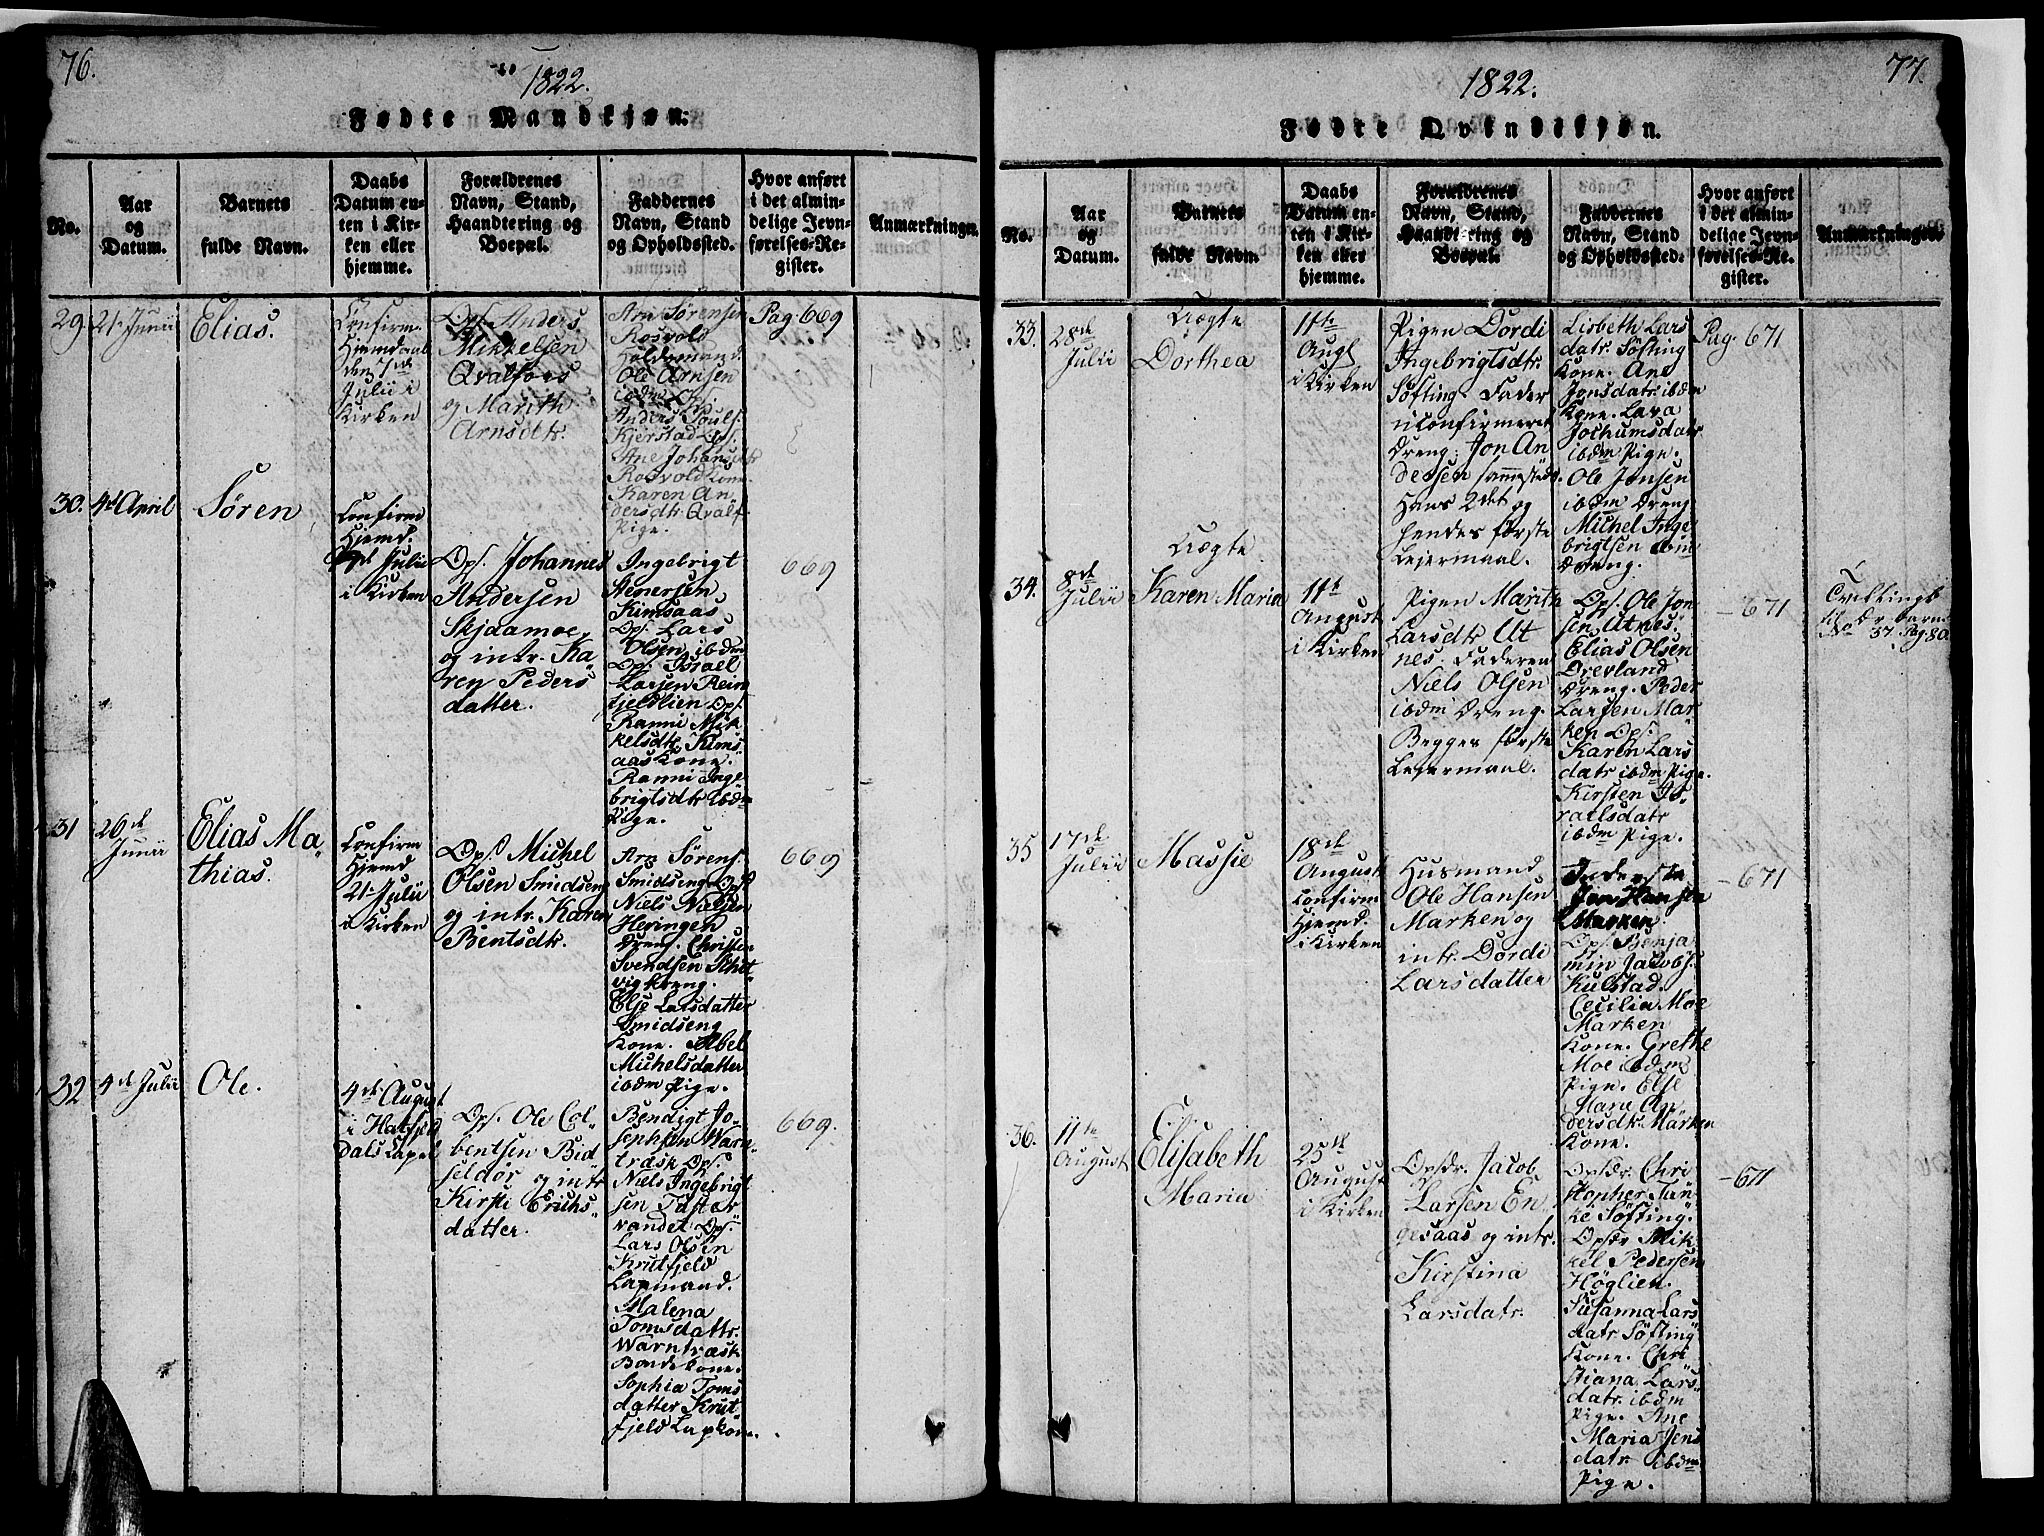 76.
1822.
Fødte Mandkjøn.
No.
Aar
og
Datum.
Barnets
fulde Navn.
Daabs
Datum en-
ten i Kir-
ken eller
hjemme.
Forældrenes
Navn, Stand,
Haandtering og
Boepæl.
Faddernes
Navn, Stand
og Opholdssted.
Hvor anført
i det almin-
delige Jevn-
førelses-Re-
gister.
Anmærkninger.
29.
21. Junii
Elias.
Confirm.
Hjemdaab
den 7de
Julii i
Kirken
Ops. Anders
Mikkelsen
Qvalfors
og Marith
Arnsdtr.
Arn Sørensen
Rosvold
Holdsmand.
Ole Arnsen
ibdm
Anders Poulss.
Kjerstad Ops.
Ane Johansdtr
Rosvold Kone
Karen An
dersdtr. Qvalf.
Pige.
Pag. 669
30.
4d April
Søren
Confirm
Hjemd.
Julii
i Kirken
Ops. Johannes
Andersen
Skjdamoe
og intr. Ka
ren Peders
datter.
Ingebrigt
Kimsaas
Ops. Lars
Olsen ibdm
Ops. Israel
Larsen Rein
fjeldlien Ops.
Ranni Mik
kelsdtr. Kims
aas Kone.
Ranni Inge
brigtsdtr ibdm
Pige.
669
31
26de
Junii
Elias Ma
thias.
Confirm
Hjemd
21. Julii
i Kirken
Ops. Michel
Olsen Smidseng
og intr. Karen
Bentsdtr.
Arn Sørens.
Smidseng Ops
Niels Nielsen
Heringen
Dreng. Christen
Svendsen
vig Dreng.
Else Larsdatter
Smidseng
Kone. Abel
Michelsdatter
ibdm Pige.
669
32
4de Julii
Ole.
4de August
i Hatfjeld
dals Capel
Ops. Ole Col
bentsen Bid
seldør og intr
Kirsti Erichs
datter.
Bendigt Jo
sephsen Warn
træsk Ops.
Niels Ingebrigt
sen Taster
vandet Ops.
Lars Olsen
Krutfjeld
Lapmand.
Malena
Tomsdattr.
Warntræsk
Bonde kone.
Sophia Toms
datter Krut
fjeld Lapkone.
669.
77.
1822.
Fødte Qvindekjøn.
No.
Aar
og
Datum.
Barnets
fulde Navn.
Daabs
Datum en-
ten i Kir-
ken eller
hjemme.
Forældrenes
Navn, Stand,
Haandtering og
Boepæl.
Faddernes
Navn, Stand
og Opholdssted.
Hvor anført
i det almin-
delige Jevn-
førelses-Re-
gister.
Anmærkninger.
33.
28de
Julii
Uægte
Dorthea
11te
Augs
i Kirken
Pigen Dordi
Ingebrigtsdtr.
Søfting. Fader
uconfirmeret
Dreng: Jon An
dersen sammesteds.
Hans 2det og
hendes første
Leiermaal.
Lisbeth Lars
datr. Søfting
Kone. Ane
Jonsdatr. ibdm
Kone. Lava
Jochumsdatr
ibdm Pige.
Ole Jonsen
ibdm Dreng
Michel Inge
brigtsen ibm
Dreng.
Pag. 671
34.
8de
Julii
Uægte
Karen Maria
11te
August
i Kirken
Pigen Marith
Larsdtr Ut
nes. Faderen
Niels Olsen
ibdm Dreng.
Begges første
Leiermaal.
Ops. Ole Jon
sen Utnes.
Elias Olsen
Drevland
Dreng. Peder
Larsen Mar
ken Ops.
Karen Lars
datr ibdm Pige.
Kirsten Is
raelsdatr
ibdm Pige.
- 671
Tvilling
til
No 37 Pag. 80
35
17de
Julii
Massie
18de
August
Confirm
Hjemd.
i Kirken
Husmand
Ole Hansen
Marken og
intr. Dordi
Larsdatter
Inderste
Jon Hansen
Marken
Ops. Benja
min Jacobs.
Kulstad.
Cecilia Moe
Marken
Kone. Grethe
Moe ibdm
Pige. Else
Marie An
dersdtr. Marken
Kone.
- 671
36.
11te
August
Elisabeth
Maria
25de
August
i Kirken
Opsdr. Jacob
Larsen En
gesaas og intr.
Kirstina
Larsdatr.
Opsdr. Chri
stopher Tän
ke Søfting.
Opsdr Mik
kel Pedersen
Høglien.
Susanna Lars
datr Søfting
Kone. Chri
stiana Lars
datr. ibdm
Pige. Ane
Maria Jens
datr. ibdm
Pige.
- 671